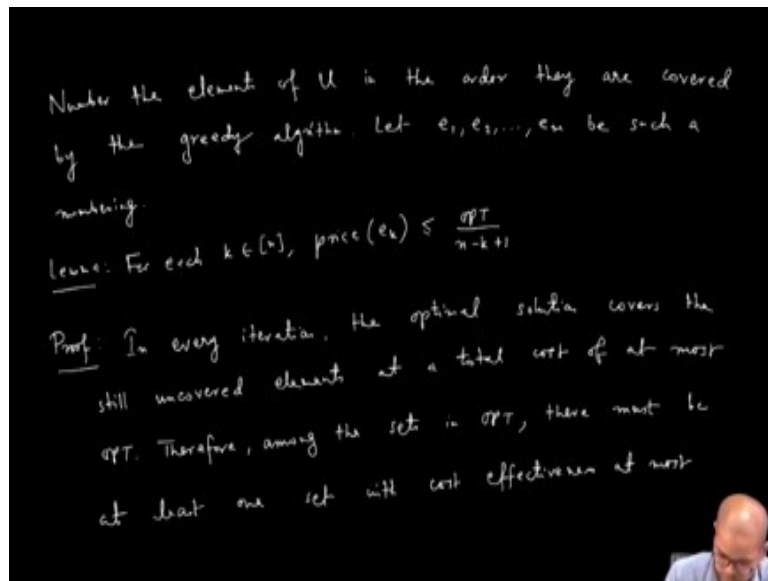 Number the element of U in the order they are covered
by the greedy algorithm. Let e₁, e₂, ..., eₙ be such a
numbering.
Lemma: For each k ∈ [n], price(eₖ) ≤ OPT / n-k+1
Proof: In every iteration, the optimal solution covers the
still uncovered elements at a total cost of at most
OPT. Therefore, among the sets in OPT, there must be
at least one set with cost effectiveness at most